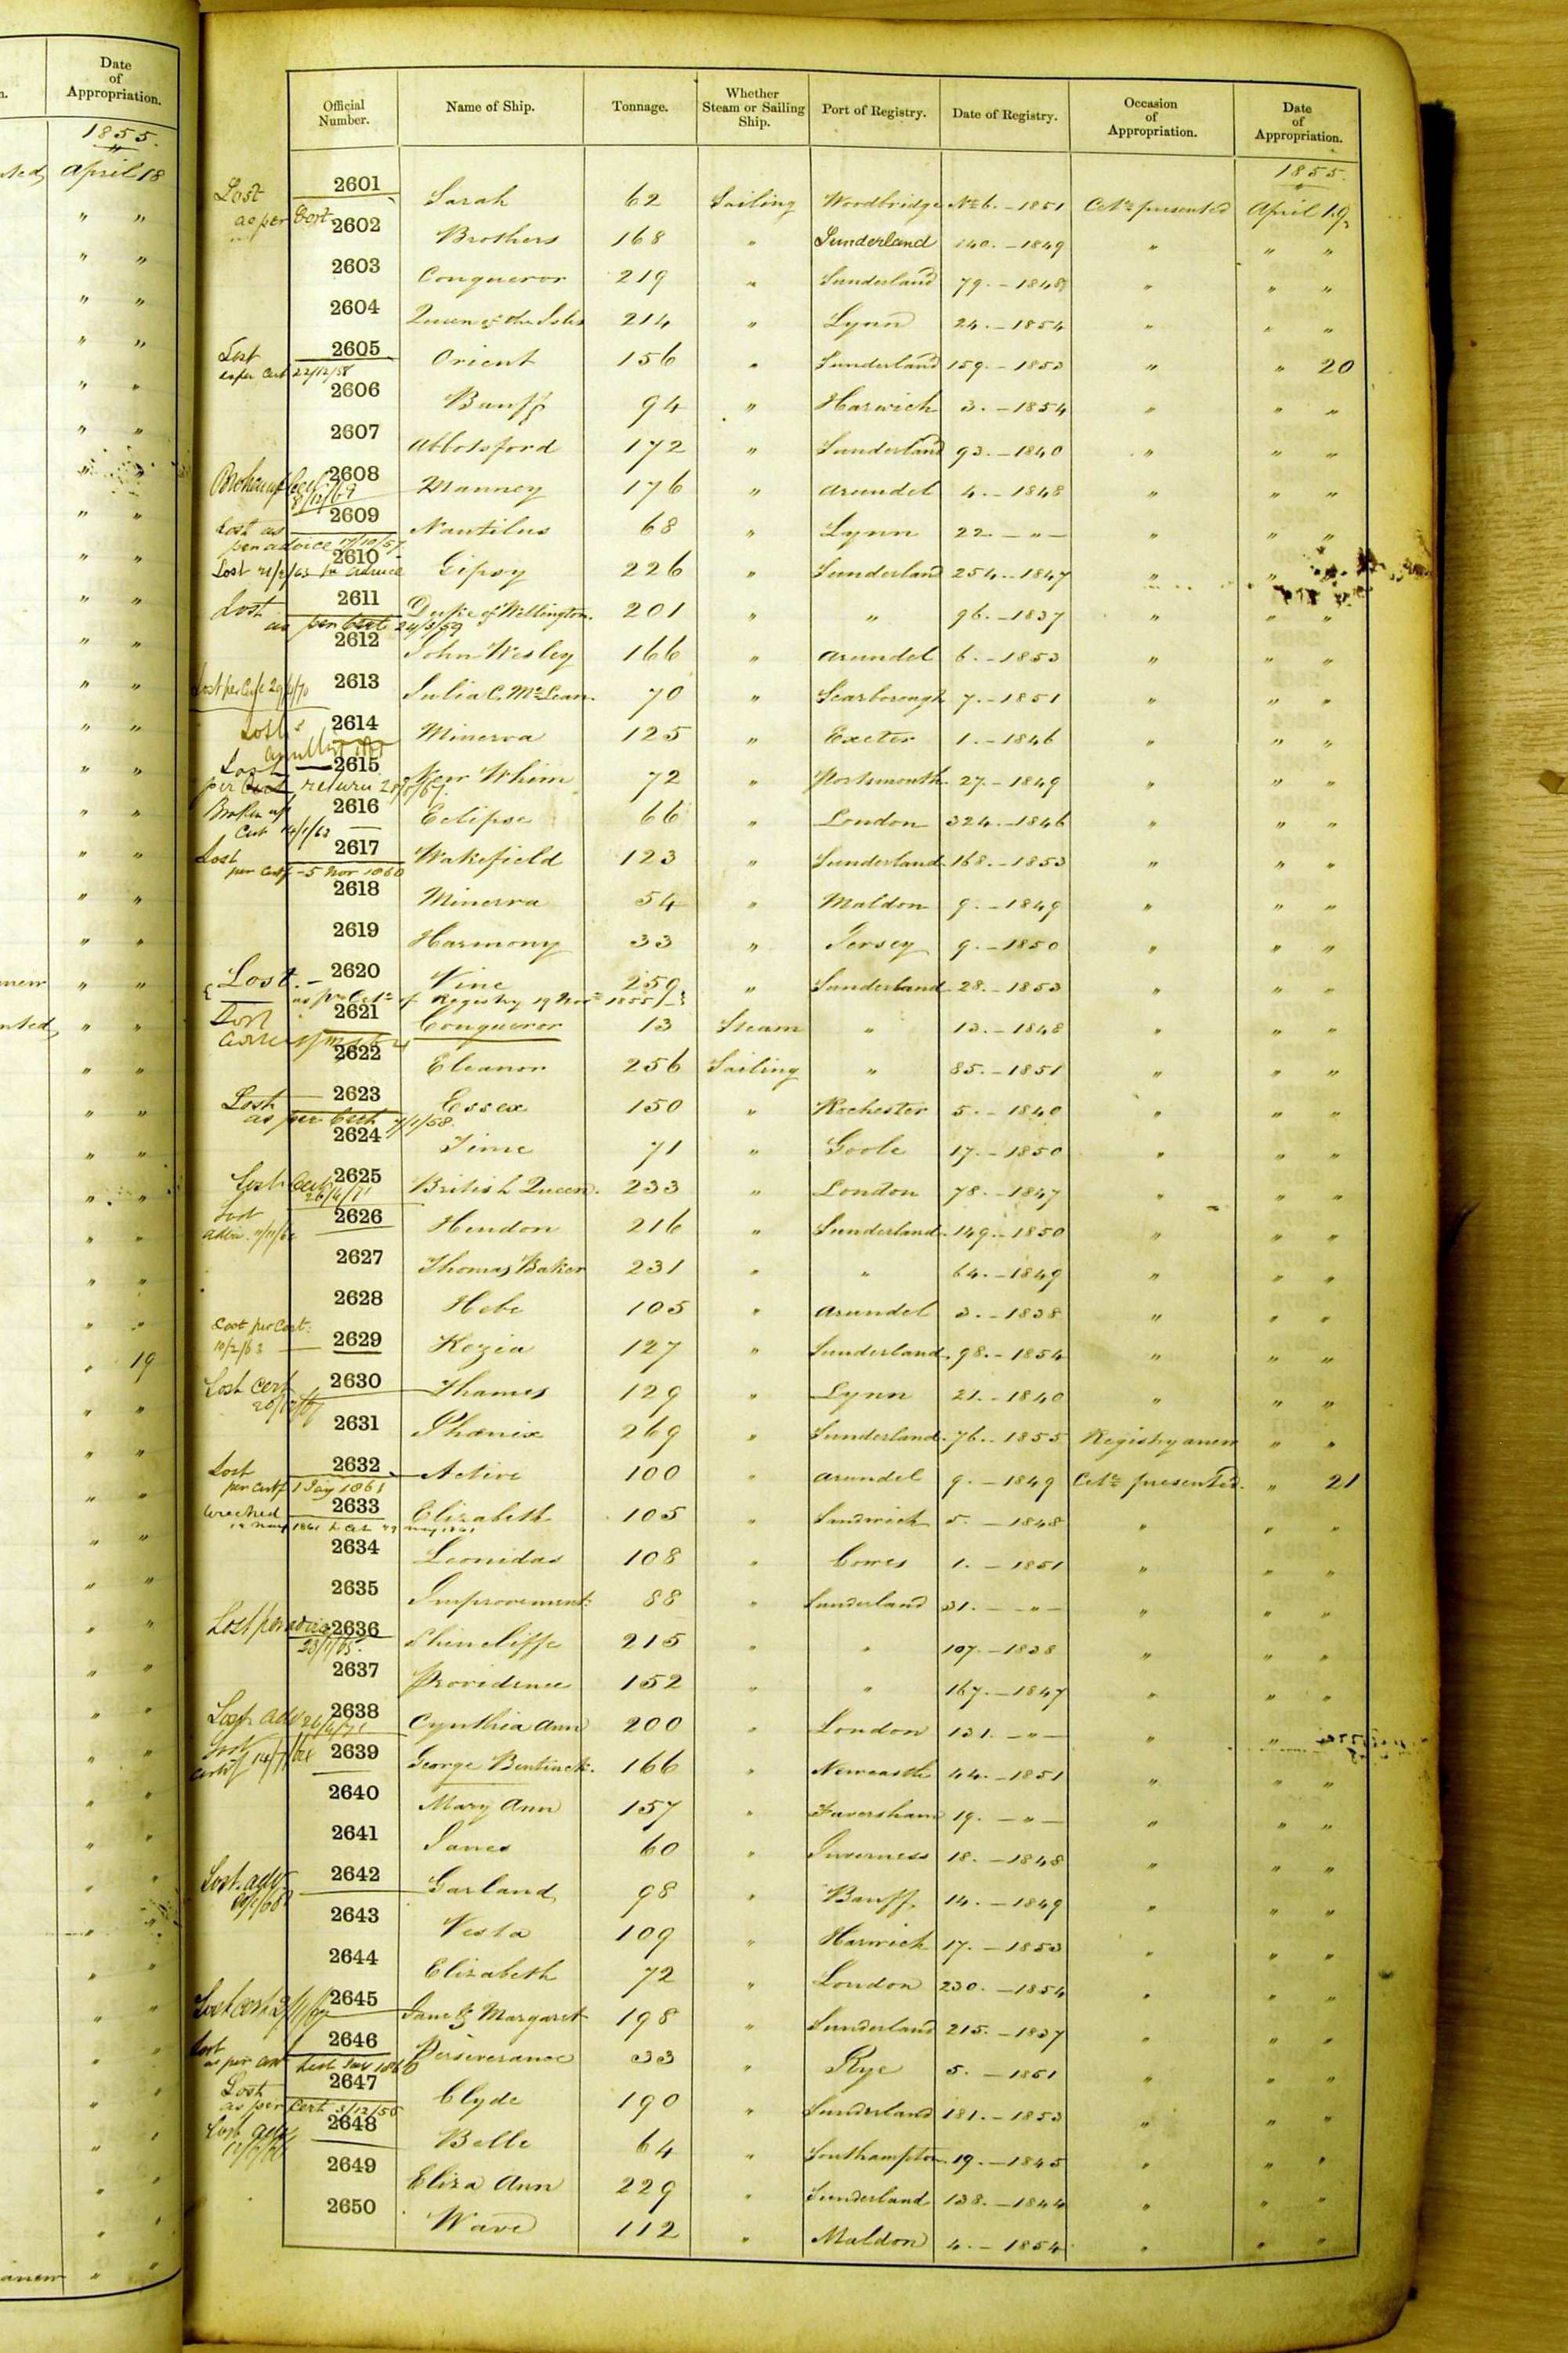 Date
of
Appropriation.
1855.
April 18
19
Official Number. Name of Ship. Tonnage. Whether Steam or Sailing Ship. Port of Registry. Date of Registry. Occasion of Appropriation. Date of Appropriation.
1855.
Lost 2601 Sarah 62 Sailing Woodbridge No 6. - 1851 Certe presented April 19
as per Cert
2602 Brothers 168 " Sunderland 140. - 1849 " " "
2603 Conqueror 219 " Sunderland 79. - 1848 " " "
2604 Queen of the Isles 214 " Lynn 24. - 1854 " " "
Lost 2605 Orient 156 " Sunderland 159. - 1853 " " 20
as per Cert 22/12/58
2606 Banff 94 " Harwich 3. - 1854 " " "
2607 Abbotsford 172 " Sunderland 93. - 1840 " " "
Broken up Cert 8/12/69 2608 Manney 176 " Arundel 4. - 1848 " " "
Lost as 2609 Nautilus 68 " Lynn 22 - " - " " "
per advice 17/10/57
Lost 21/2/63 2610 Gipsy 226 " Sunderland 254. - 1847 " " "
Lost 2611 Duke of Wellington. 201 " " 96. - 1837 " " "
as per Cert 24/3/59
2612 John Wesley 166 " Arundel 6. - 1853 " " "
2613 Julia C. McLean. 70 " Scarborough 7. - 1851 " " "
Lost 2614 Minerva 125 " Exeter 1. - 1846 " " "
Lost 2615 New Whim 72 " Portsmouth 27. - 1849 " " "
per return
Broken up 2616 Eclipse 66 " London 324. - 1846 " " "
Cert
Lost 2617 Wakefield 123 " Sunderland. 168. - 1853 " " "
per Certf - 5 Nov 1860
2618 Minerva 54 " Maldon 9. - 1849 " " "
2619 Harmony 33 " Jersey 9. - 1850 " " "
Lost. - 2620 Vine 259 " Sunderland 28. - 1853 " " "
as pr Certe of Registry 19 Nov 1855
Lost 2621 Conqueror 13 Steam " 13. - 1848 " " "
2622 Eleanor 256 Sailing " 85. - 1851 " " "
Lost 2623 Essex 150 " Rochester 5. - 1840 " " "
as per Cert 7/1/58.
2624 Time 71 " Goole 17. - 1850 " " "
Lost Cert 26/4/71 2625 British Queen. 233 " London 78. - 1847 " " "
Lost 2626 Hendon 216 " Sunderland. 149. - 1850 " " "
2627 Thomas Baker 231 " " 64. - 1849 " " "
2628 Hebe 105 " Arundel 3. - 1838 " " "
Lost per Cert:
10/2/63 2629 Kezia 127 " Sunderland. 98. - 1854 " " "
Lost Cert 2630 Thames 129 " Lynn 21. - 1840 " " "
2631 Phœnix 269 " Sunderland. 76. - 1855 Registry anew " "
Lost 2632 Active 100 " Arundel 9. - 1849 Certe presented. " 21
per certf 1 Jay 1861
Wrecked 2633 Elizabeth 105 " Sandwich 5. - 1848 " " "
2634 Leonidas 108 " Cowes 1. - 1851 " " "
2635 Improvement 88 " Sunderland 31. - " - " " "
Lost per advice 2636 Shincliffe 215 " " 107. - 1838 " " "
2637 Providence 152 " " 167. - 1847 " " "
Lost adv 26/4/71 2638 Cynthia Ann 200 " London 131. - " - " " "
Lost 2639 George Bentinck. 166 " Newcastle 44. - 1851 " " "
2640 Mary Ann 157 " Faversham 19. - " - " " "
2641 Janes 60 " Inverness 18. - 1848 " " "
Lost. adv. 2642 Garland 98 " Banff. 14. - 1849 " " "
2643 Vesta 109 " Harwich 17. - 1853 " " "
2644 Elizabeth 72 " London 230. - 1854 " " "
Lost Cert 2645 Jane & Margaret 198 " Sunderland 215. - 1837 " " "
Lost 2646 Perseverance 33 " Rye 5. - 1851 " " "
as per
Lost 2647 Clyde 190 " Sunderland 181. - 1853 " " "
as per Cert 3/12/55
Lost 2648 Belle 64 " Southampton. 19. - 1845 " " "
2649 Eliza Ann 229 " Sunderland 138. - 1844 " " "
2650 Wave 112 " Maldon 4. - 1854 " " "